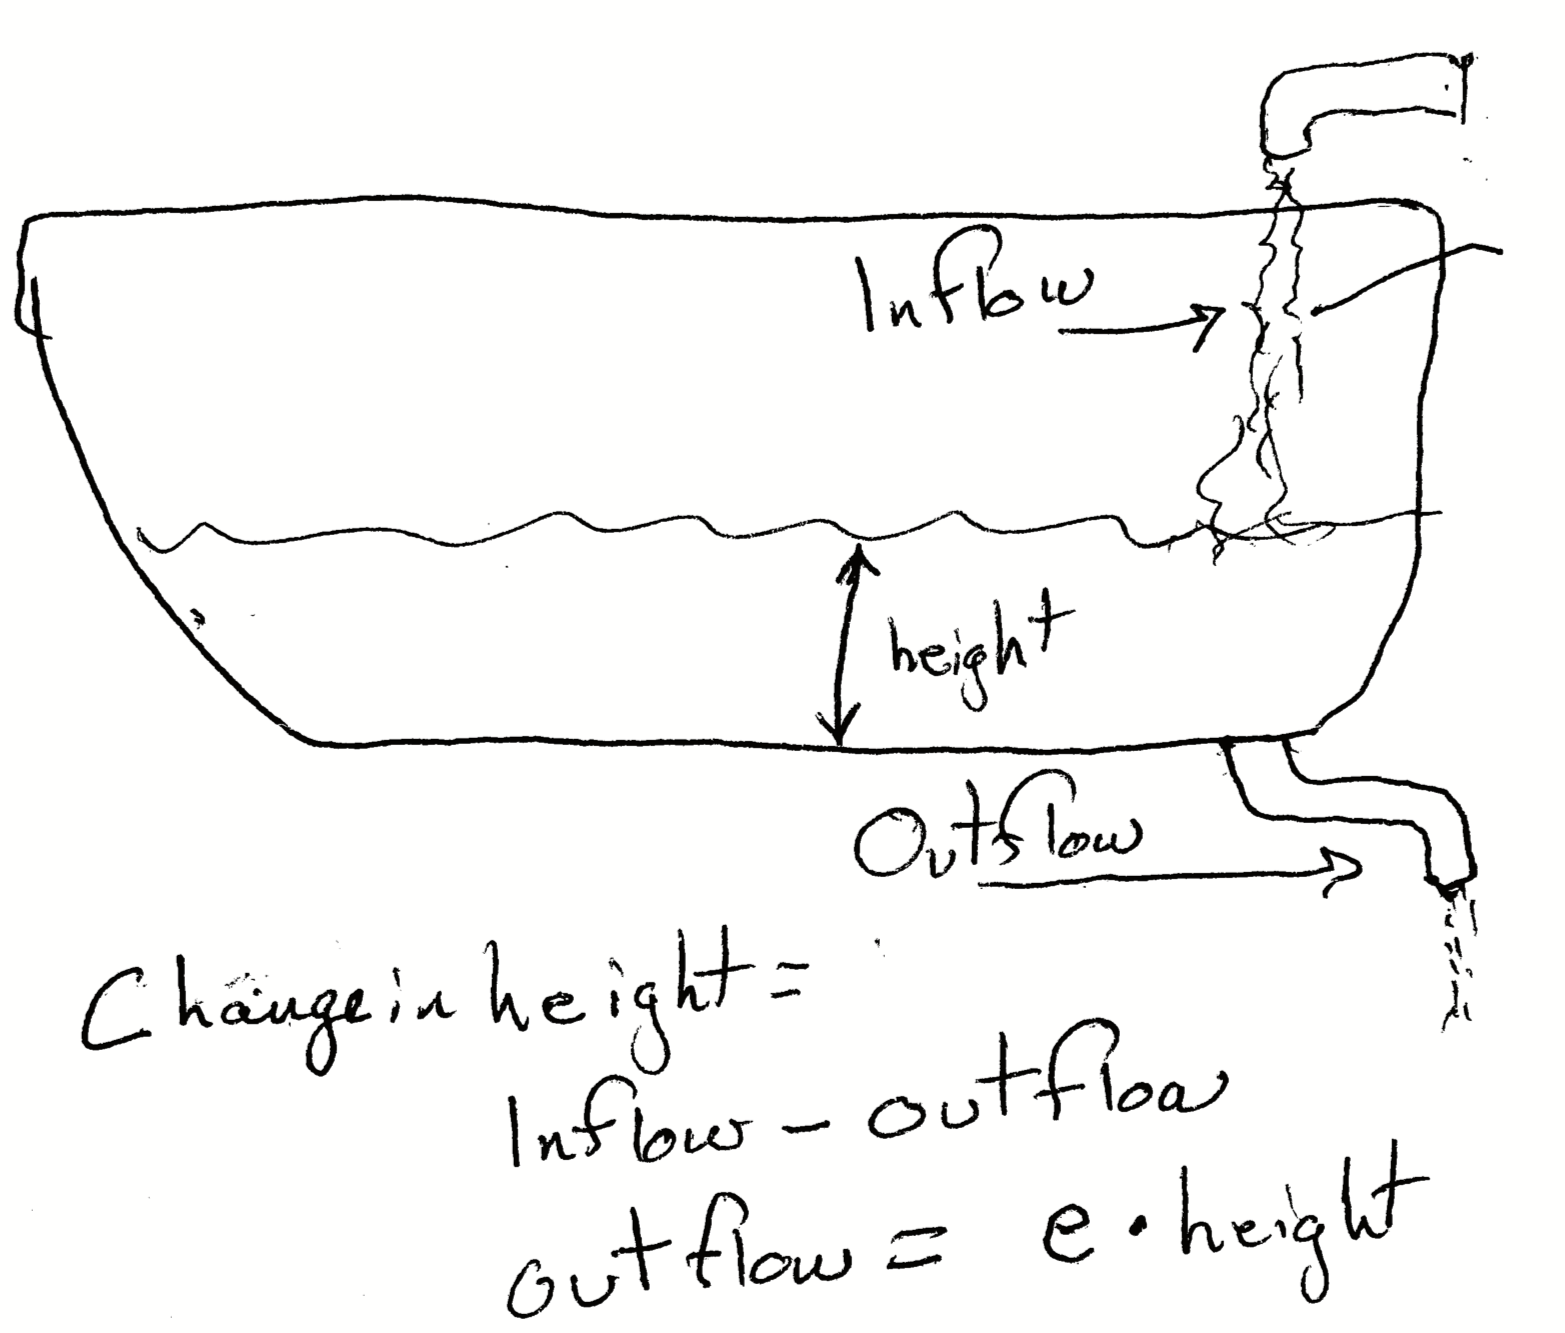 Inflow
height
Outflow
Change in height =
Inflow - outfloa
outflow = e • height